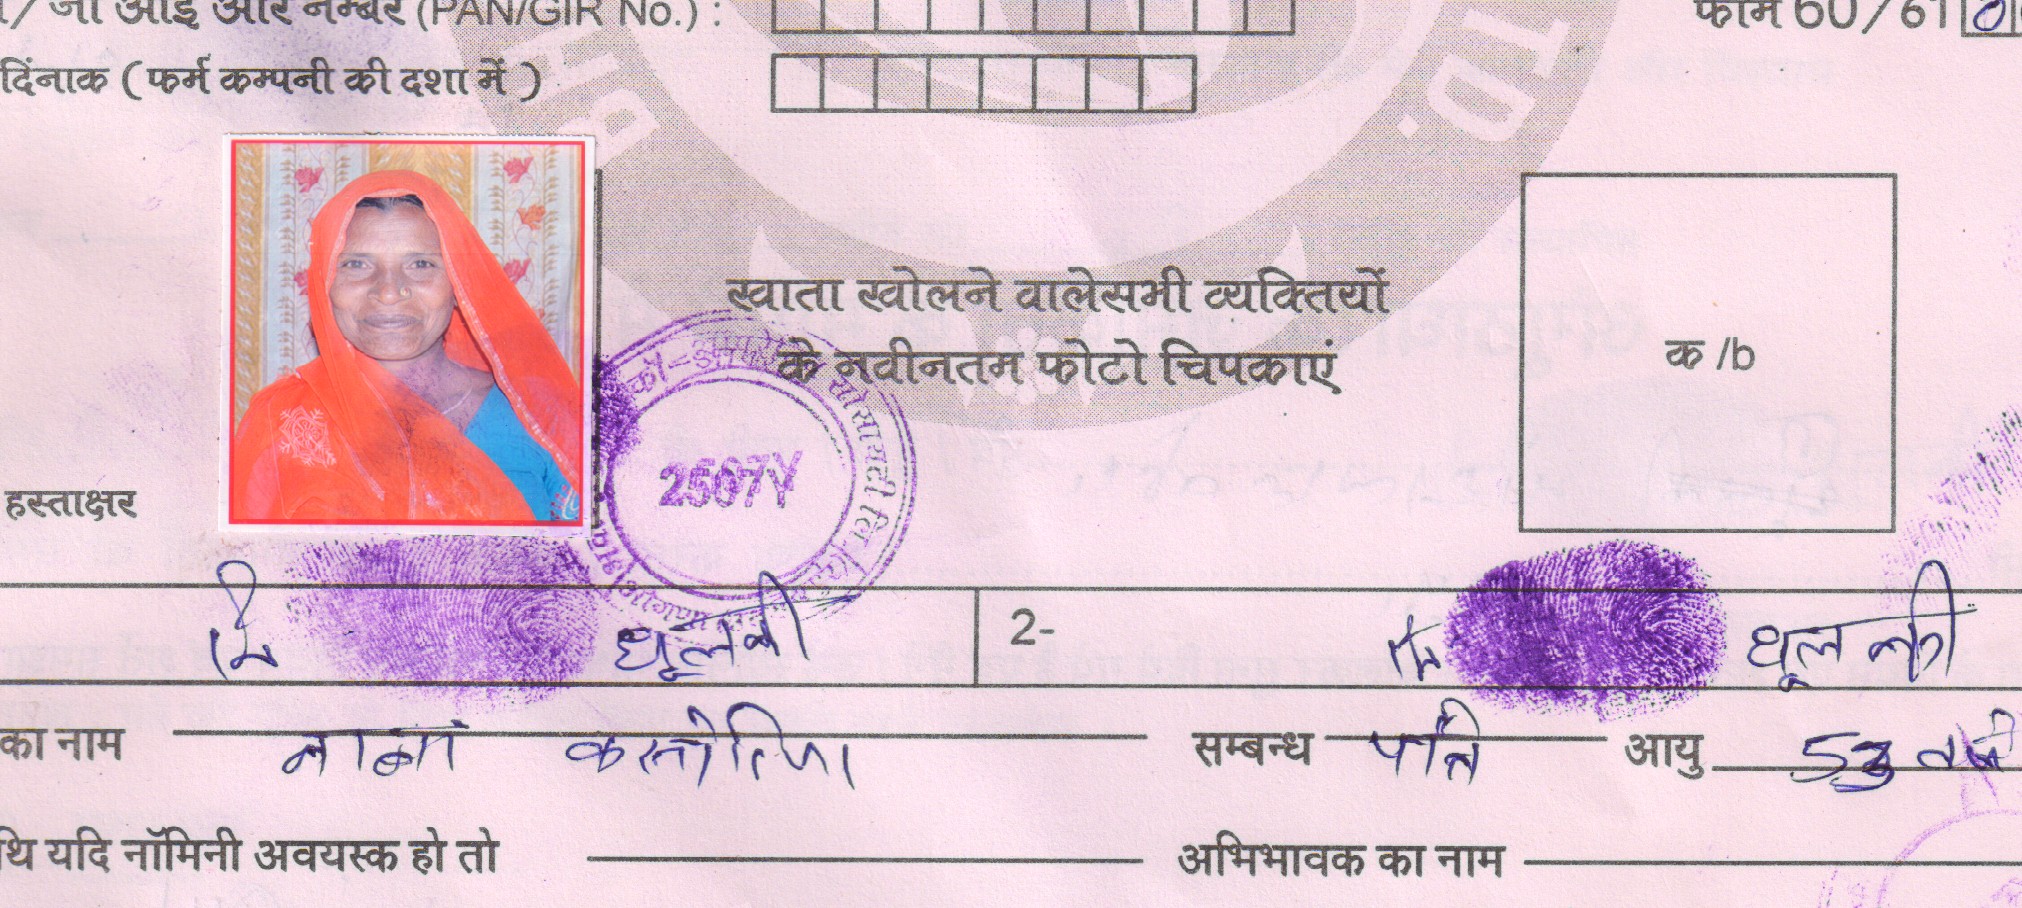 / जी आई आर नम्बर (PAN/GIR No.) :
फार्म 60/61
दिंनाक ( फर्म कम्पनी की दशा में )
TD.
खाता खोलने वालेसभी व्यक्तियों
के नवीनतम फोटो चिपकाएं
क /b
2507Y
हस्ताक्षर
धूलकी
2-
धूलकी
का नाम
सम्बन्ध पति आयु 53 वर्ष
थि यदि नॉमिनी अवयस्क हो तो
अभिभावक का नाम